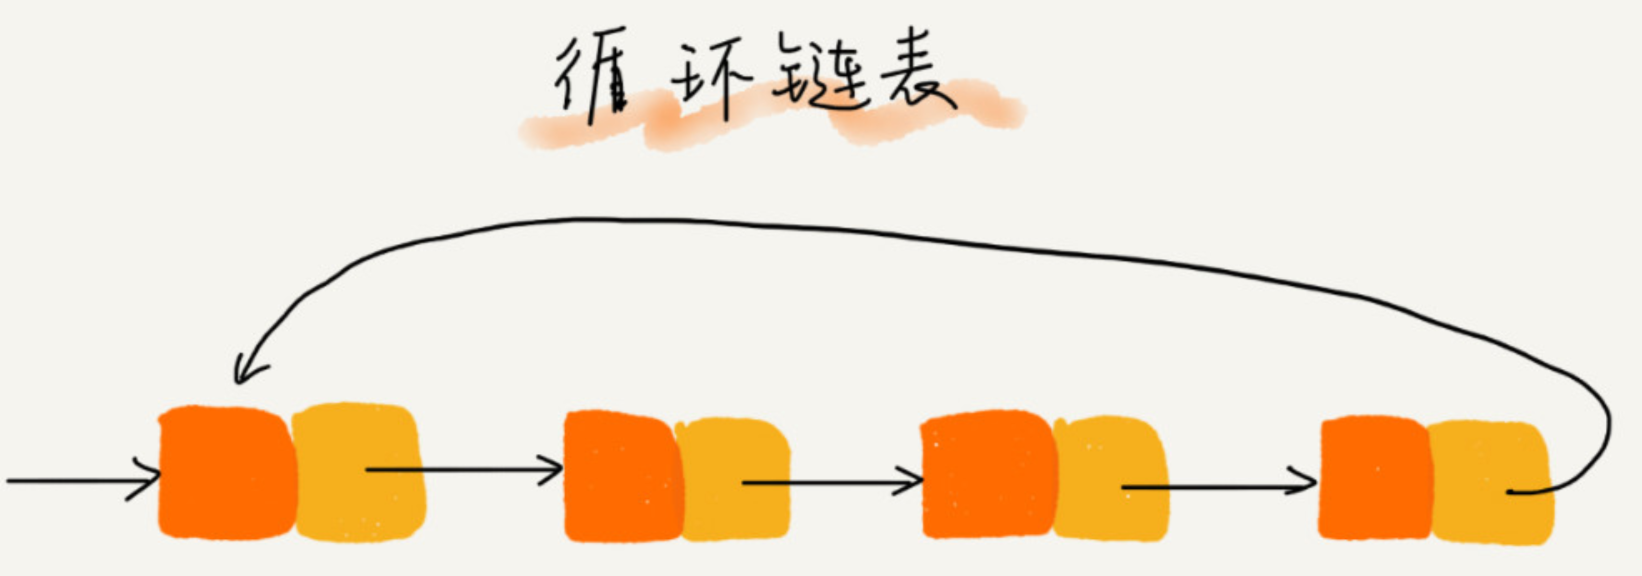 循环链表